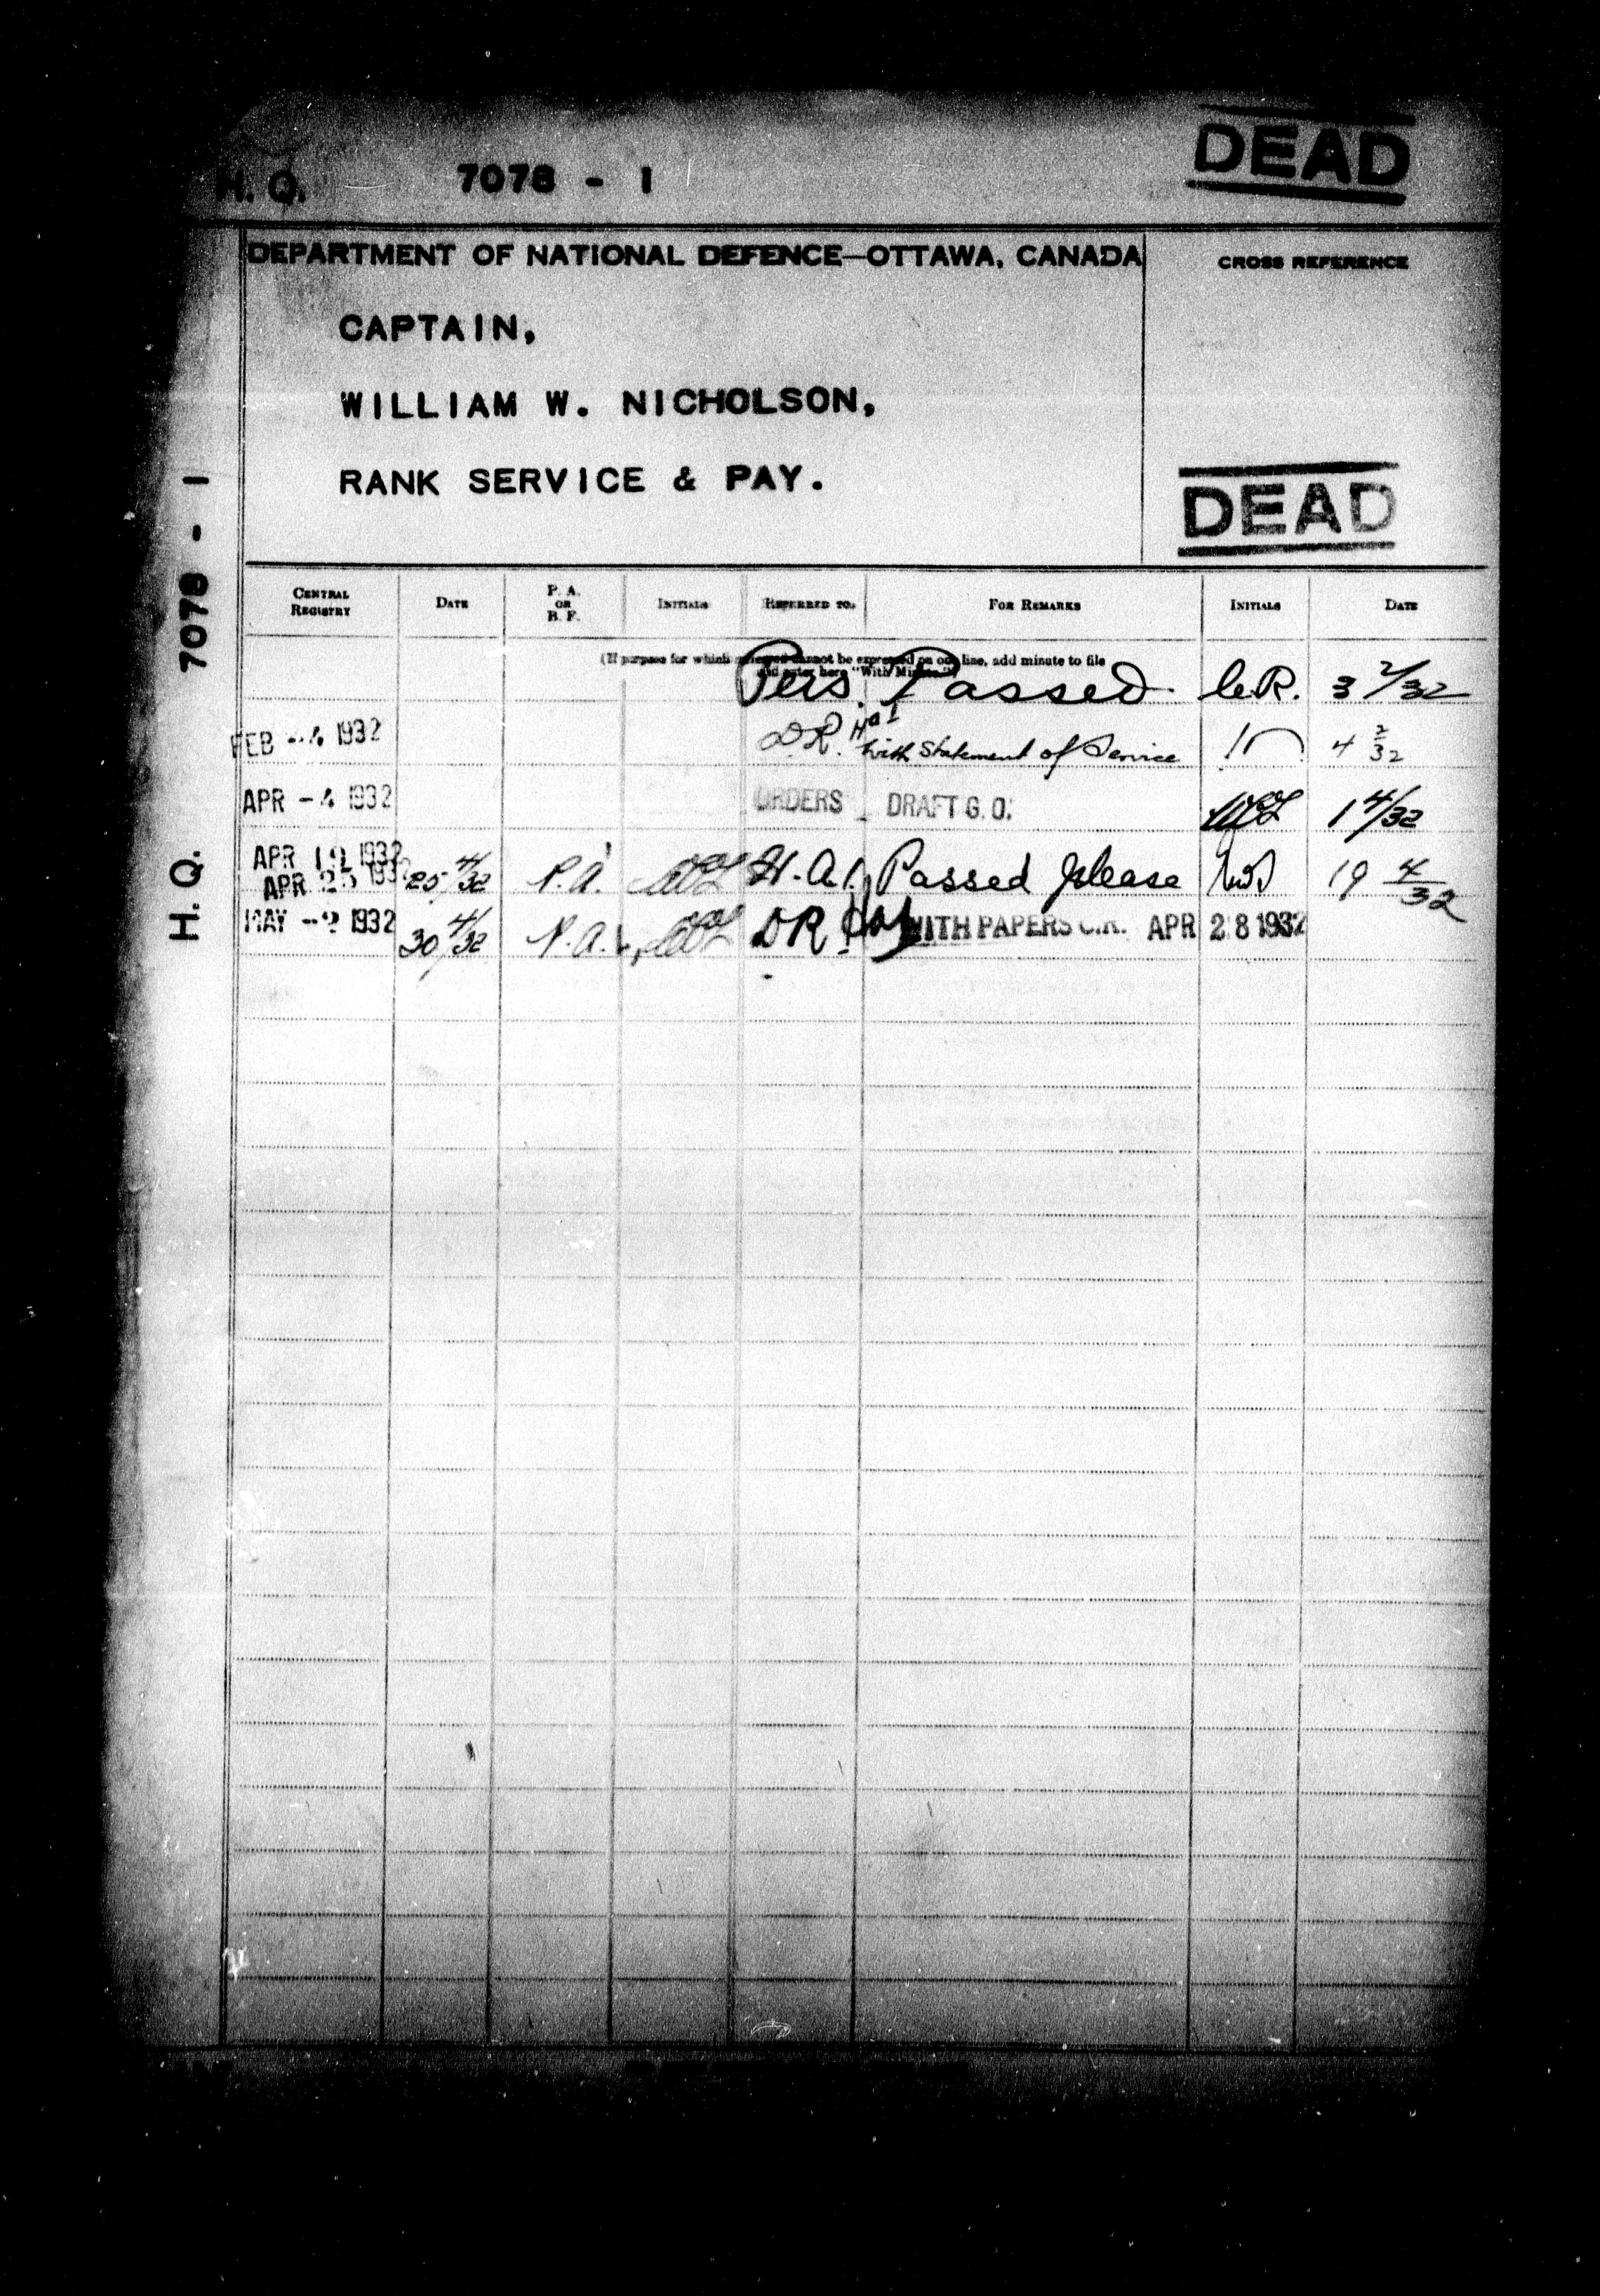 DEAD
H. Q. 7078 - 1
DEPARTMENT OF NATIONAL DEFENCE—OTTAWA, CANADA
CROSS REFERENCE
CAPTAIN,
WILLIAM W. NICHOLSON,
RANK SERVICE & PAY.
DEAD
H. Q. 7078 - 1
CENTRAL REGISTRY DATE P. A. OR B. F. INITIALS REFERRED TO. FOR REMARKS INITIALS DATE
(If purpose for which referred cannot be expressed on one line, add minute to file
and enter here "With Minute.")
Pers. Passed C.R. 3 2/32
FEB -4 1932 D.R. Ha1 with Statement of Service 4 2/32
APR -4 1932 ORDERS DRAFT G. O. 1 4/32
APR 19 1932 H.A.1. Passed please 19 4/32
APR 25 1932 25 4/32 P.A.
MAY -2 1932 30 4/32 P.A. DR WITH PAPERS C.R. APR 28 1932